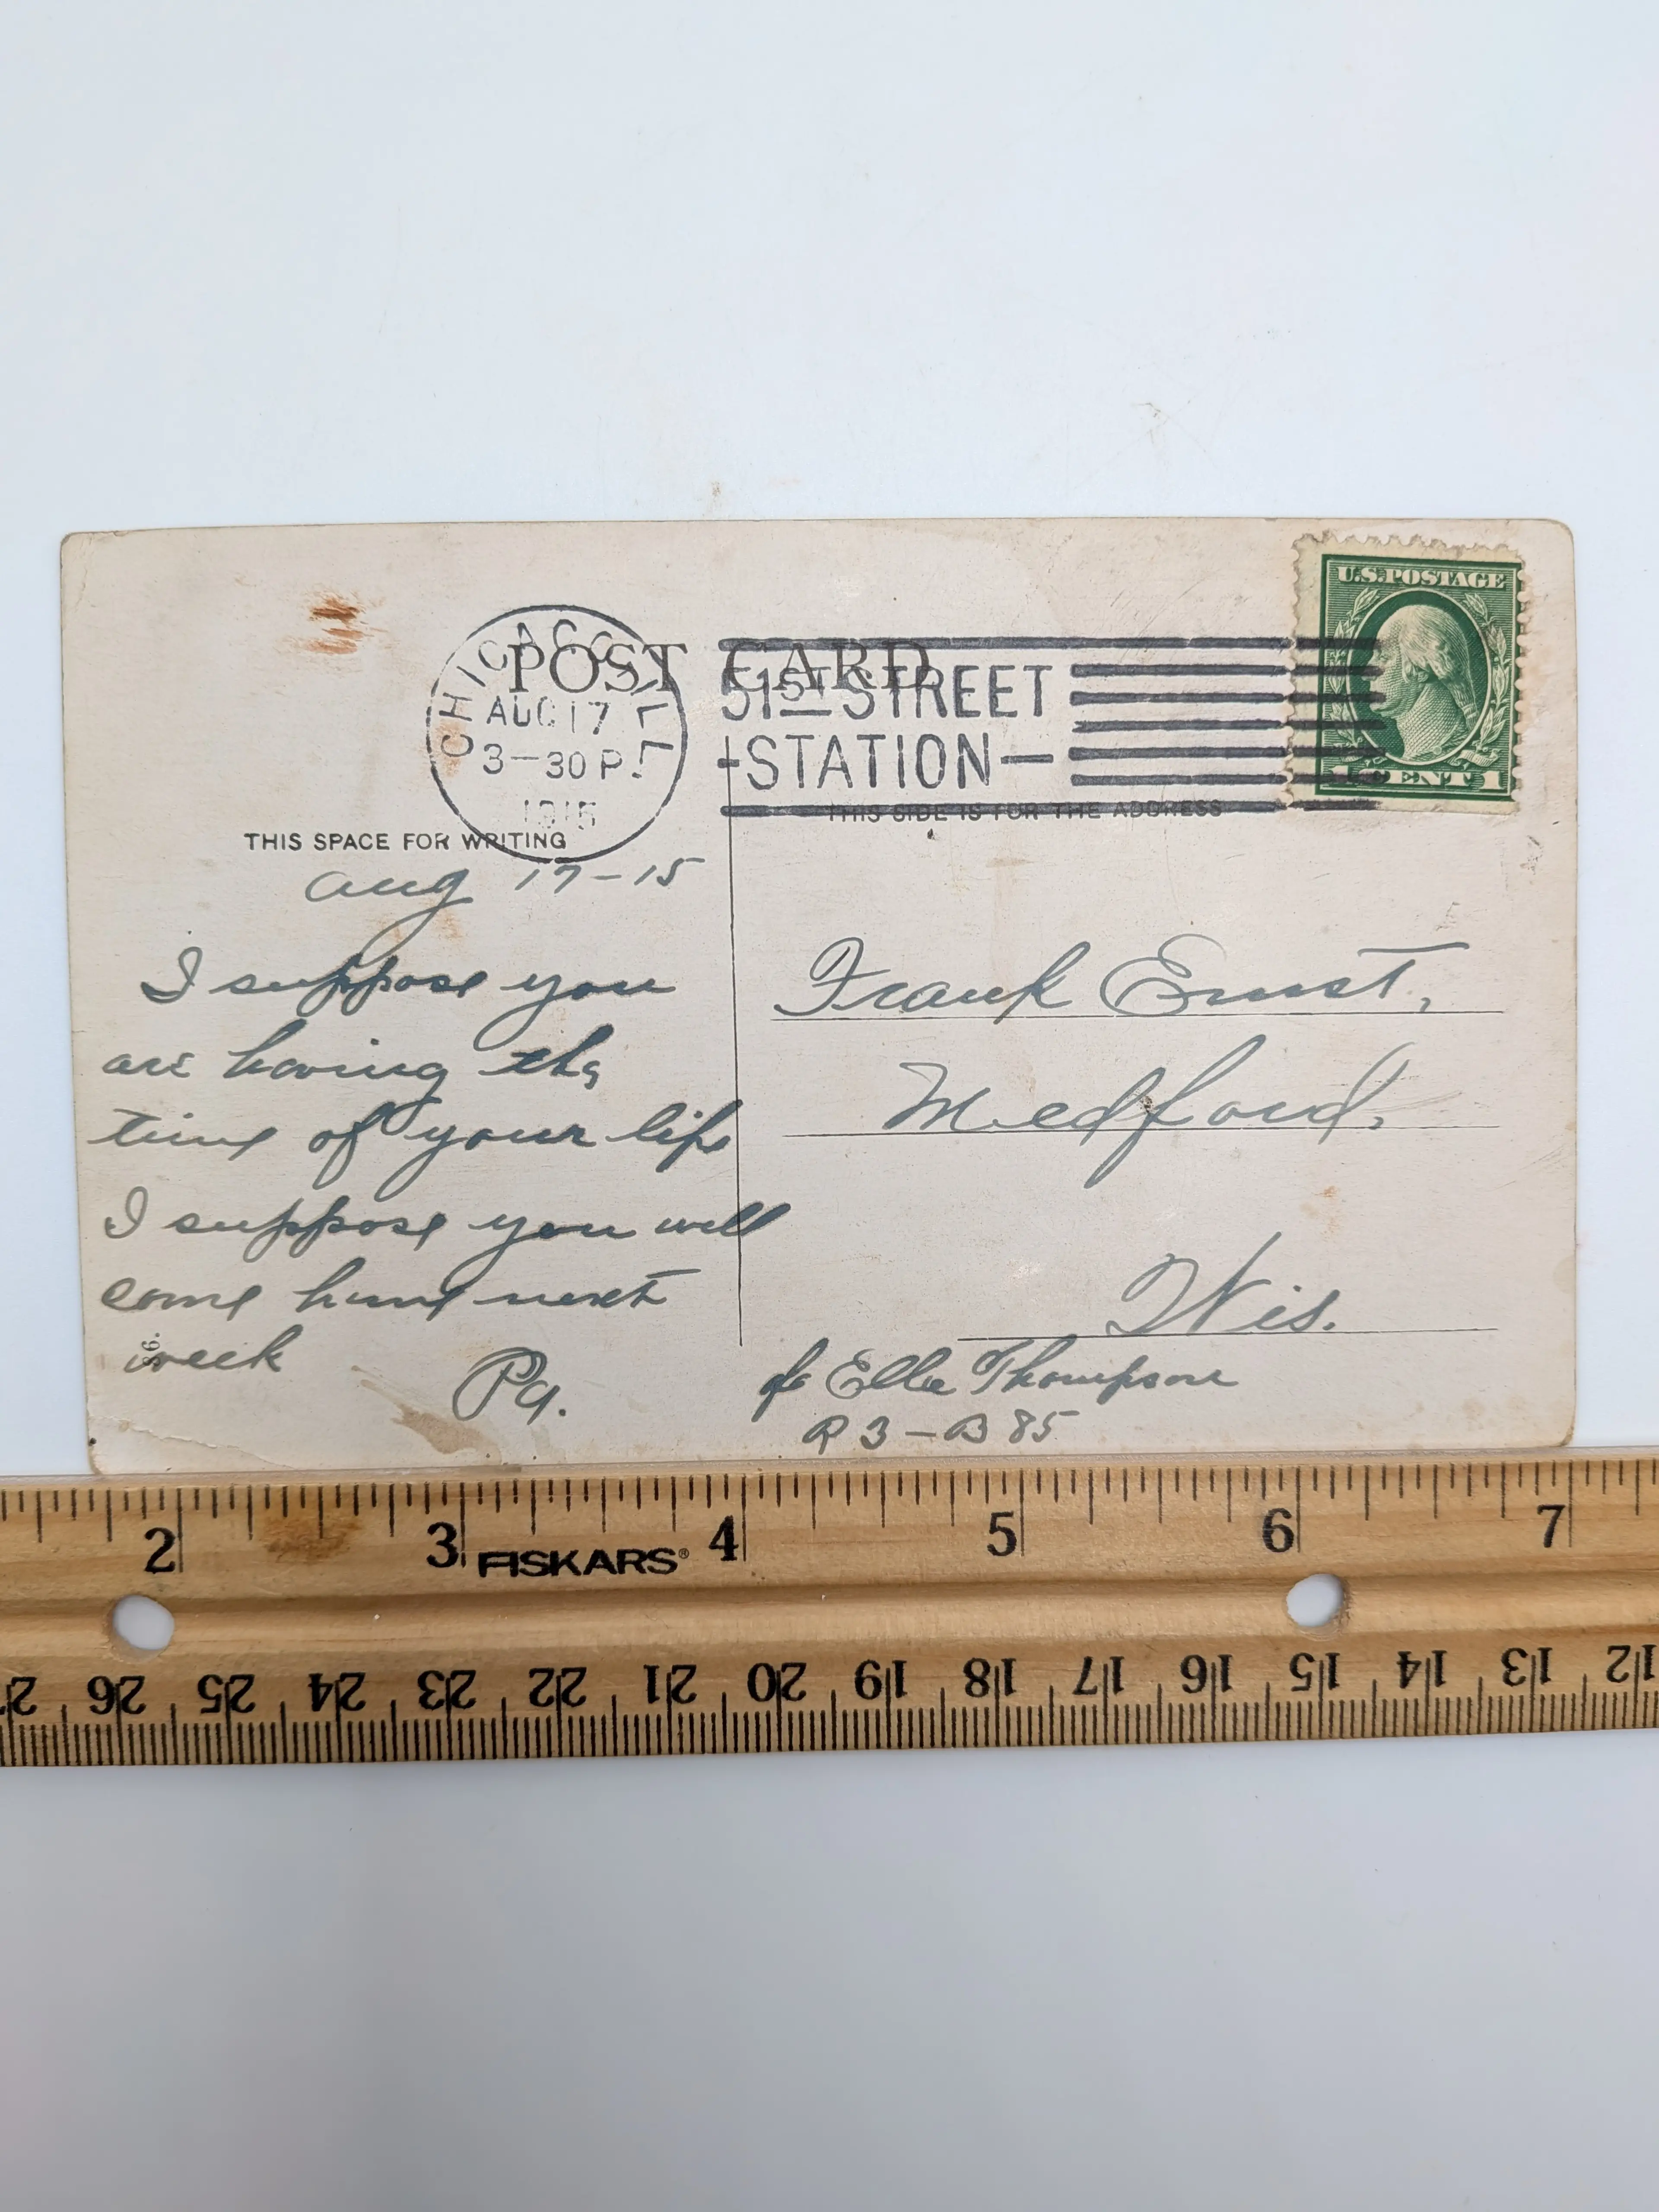 POST CARD
CHICAGO, ILL.
AUG 17
3-30 P.
1915
51ST STREET
STATION
U.S. POSTAGE
1 CENT 1
THIS SPACE FOR WRITING
THIS SIDE IS FOR THE ADDRESS
Aug 17-15
I suppose you
are having the
time of your life
I suppose you will
come home next
week
Pa.
S6.
Frank Ernst,
Medford,
Wis.
c/o Ella Thompson
R 3 - B 85
2 3 4 5 6 7
FISKARS®
26 25 24 23 22 21 20 19 18 17 16 15 14 13 12